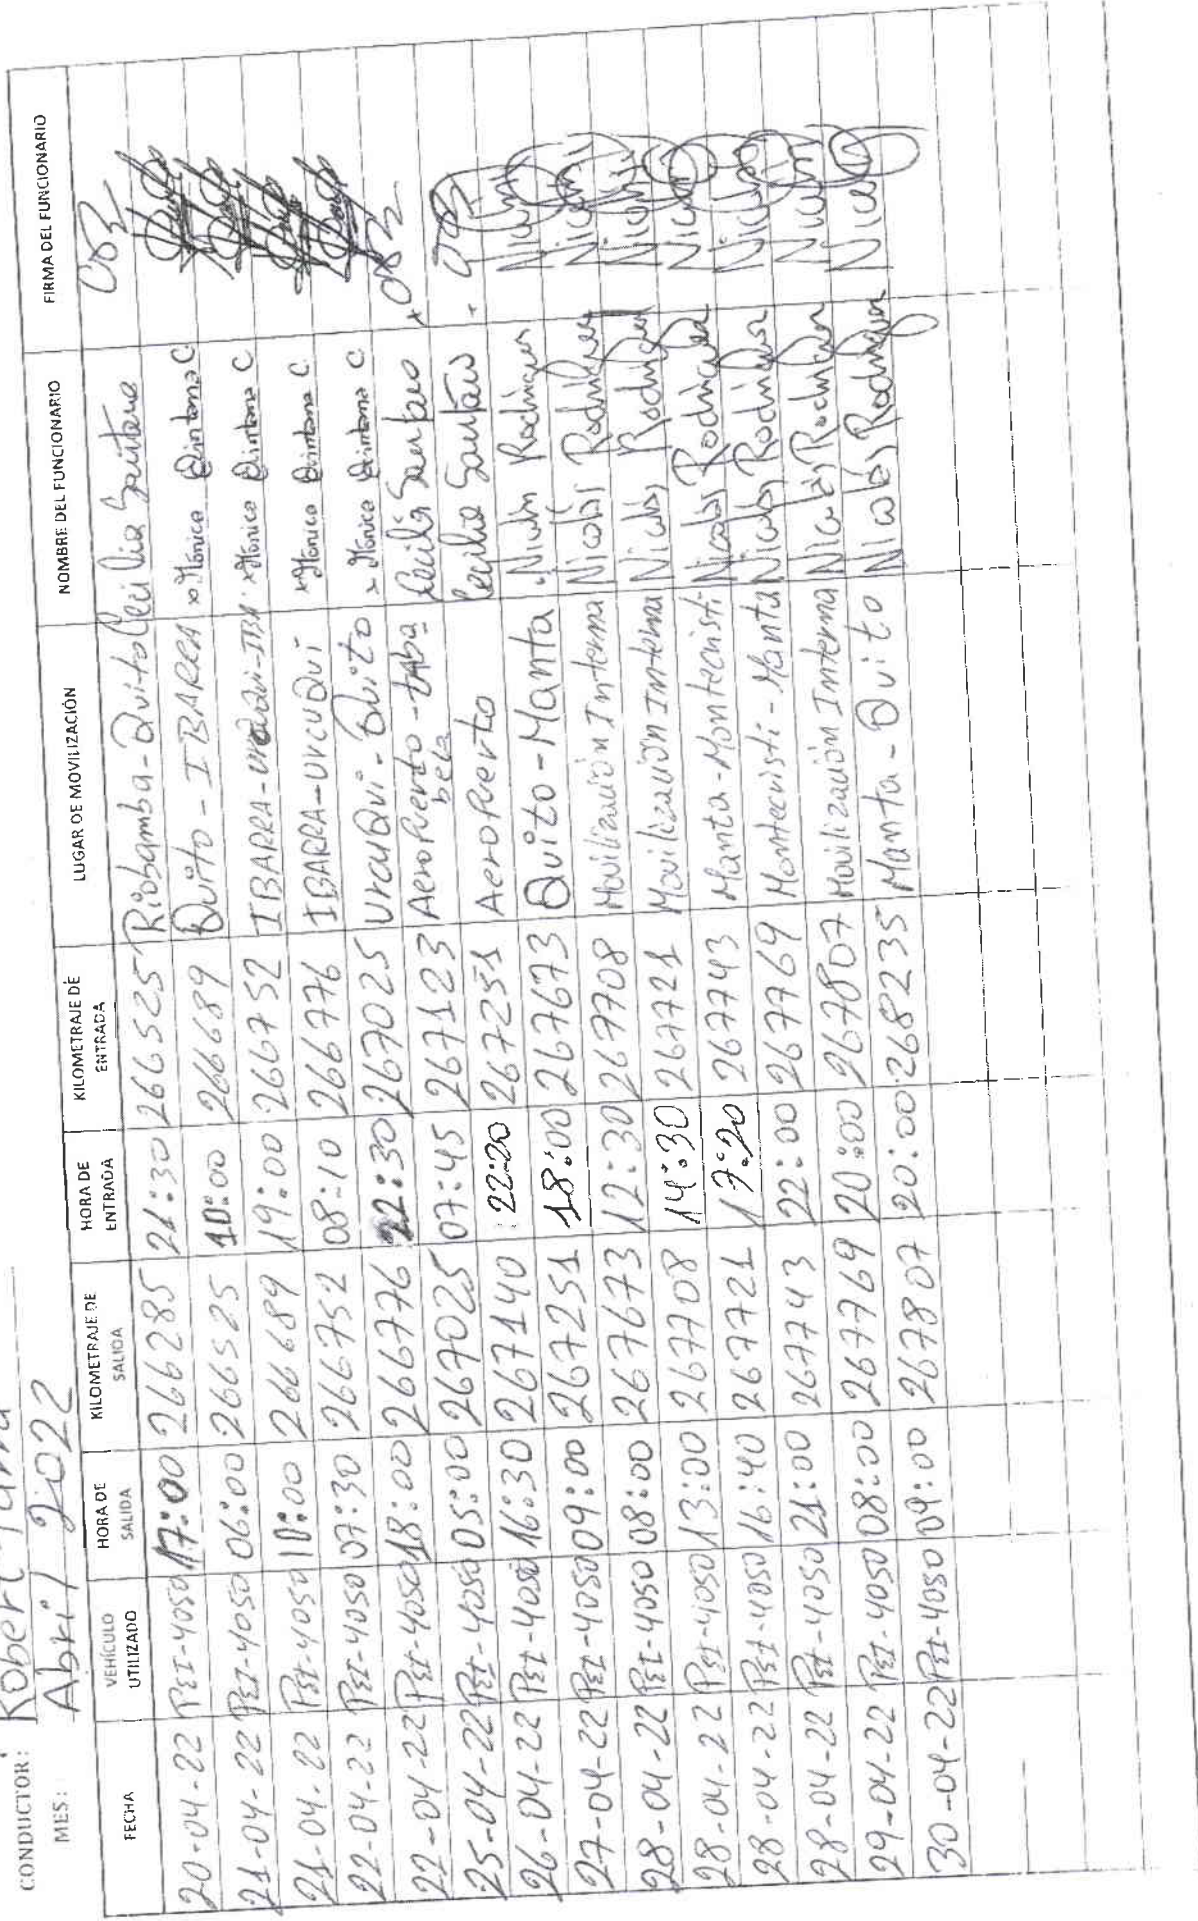 CONDUCTOR: Robert
MES: Abril 2022
FECHA VEHÍCULO UTILIZADO HORA DE SALIDA KILOMETRAJE DE SALIDA HORA DE ENTRADA KILOMETRAJE DE ENTRADA LUGAR DE MOVILIZACIÓN NOMBRE DEL FUNCIONARIO FIRMA DEL FUNCIONARIO
20-04-22 PEI-4050 17:00 266285 21:30 266525 Riobamba-Quito Cecilia Santero
21-04-22 PEI-4050 06:00 266525 10:00 266689 Quito-IBARRA x Mónica Quintana C
21-04-22 PEI-4050 10:00 266689 19:00 266752 IBARRA-Urcuqui-IBA. x Mónica Quintana C
22-04-22 PEI-4050 07:30 266752 08:10 266776 IBARRA-UrcuQuí x Mónica Quintana C.
22-04-22 PEI-4050 18:00 266776 22:30 267025 UrcuQui-Quito x Mónica Quintana C
25-04-22 PEI-4050 05:00 267025 07:45 267123 AeroPuerto-taba bela Cecilia Santero
26-04-22 PEI-4050 16:30 267140 22:20 267251 AeroPuerto Cecilia Santero
27-04-22 PEI-4050 09:00 267251 18:00 267673 Quito-Manta Nicolás Rodríguez
28-04-22 PEI-4050 08:00 267673 12:30 267708 Movilización Interna Nicolás Rodríguez
28-04-22 PEI-4050 13:00 267708 14:30 267721 Movilización Interna Nicolás Rodríguez
28-04-22 PEI-4050 16:40 267721 17:20 267743 Manta-Montecristi Nicolás Rodríguez
28-04-22 PEI-4050 21:00 267743 22:00 267769 Montecristi-Manta Nicolás Rodríguez
29-04-22 PEI-4050 08:00 267769 20:00 267807 Movilización Interna Nicolás Rodríguez
30-04-22 PEI-4050 09:00 267807 20:00 268235 Manta-Quito Nicolás Rodríguez